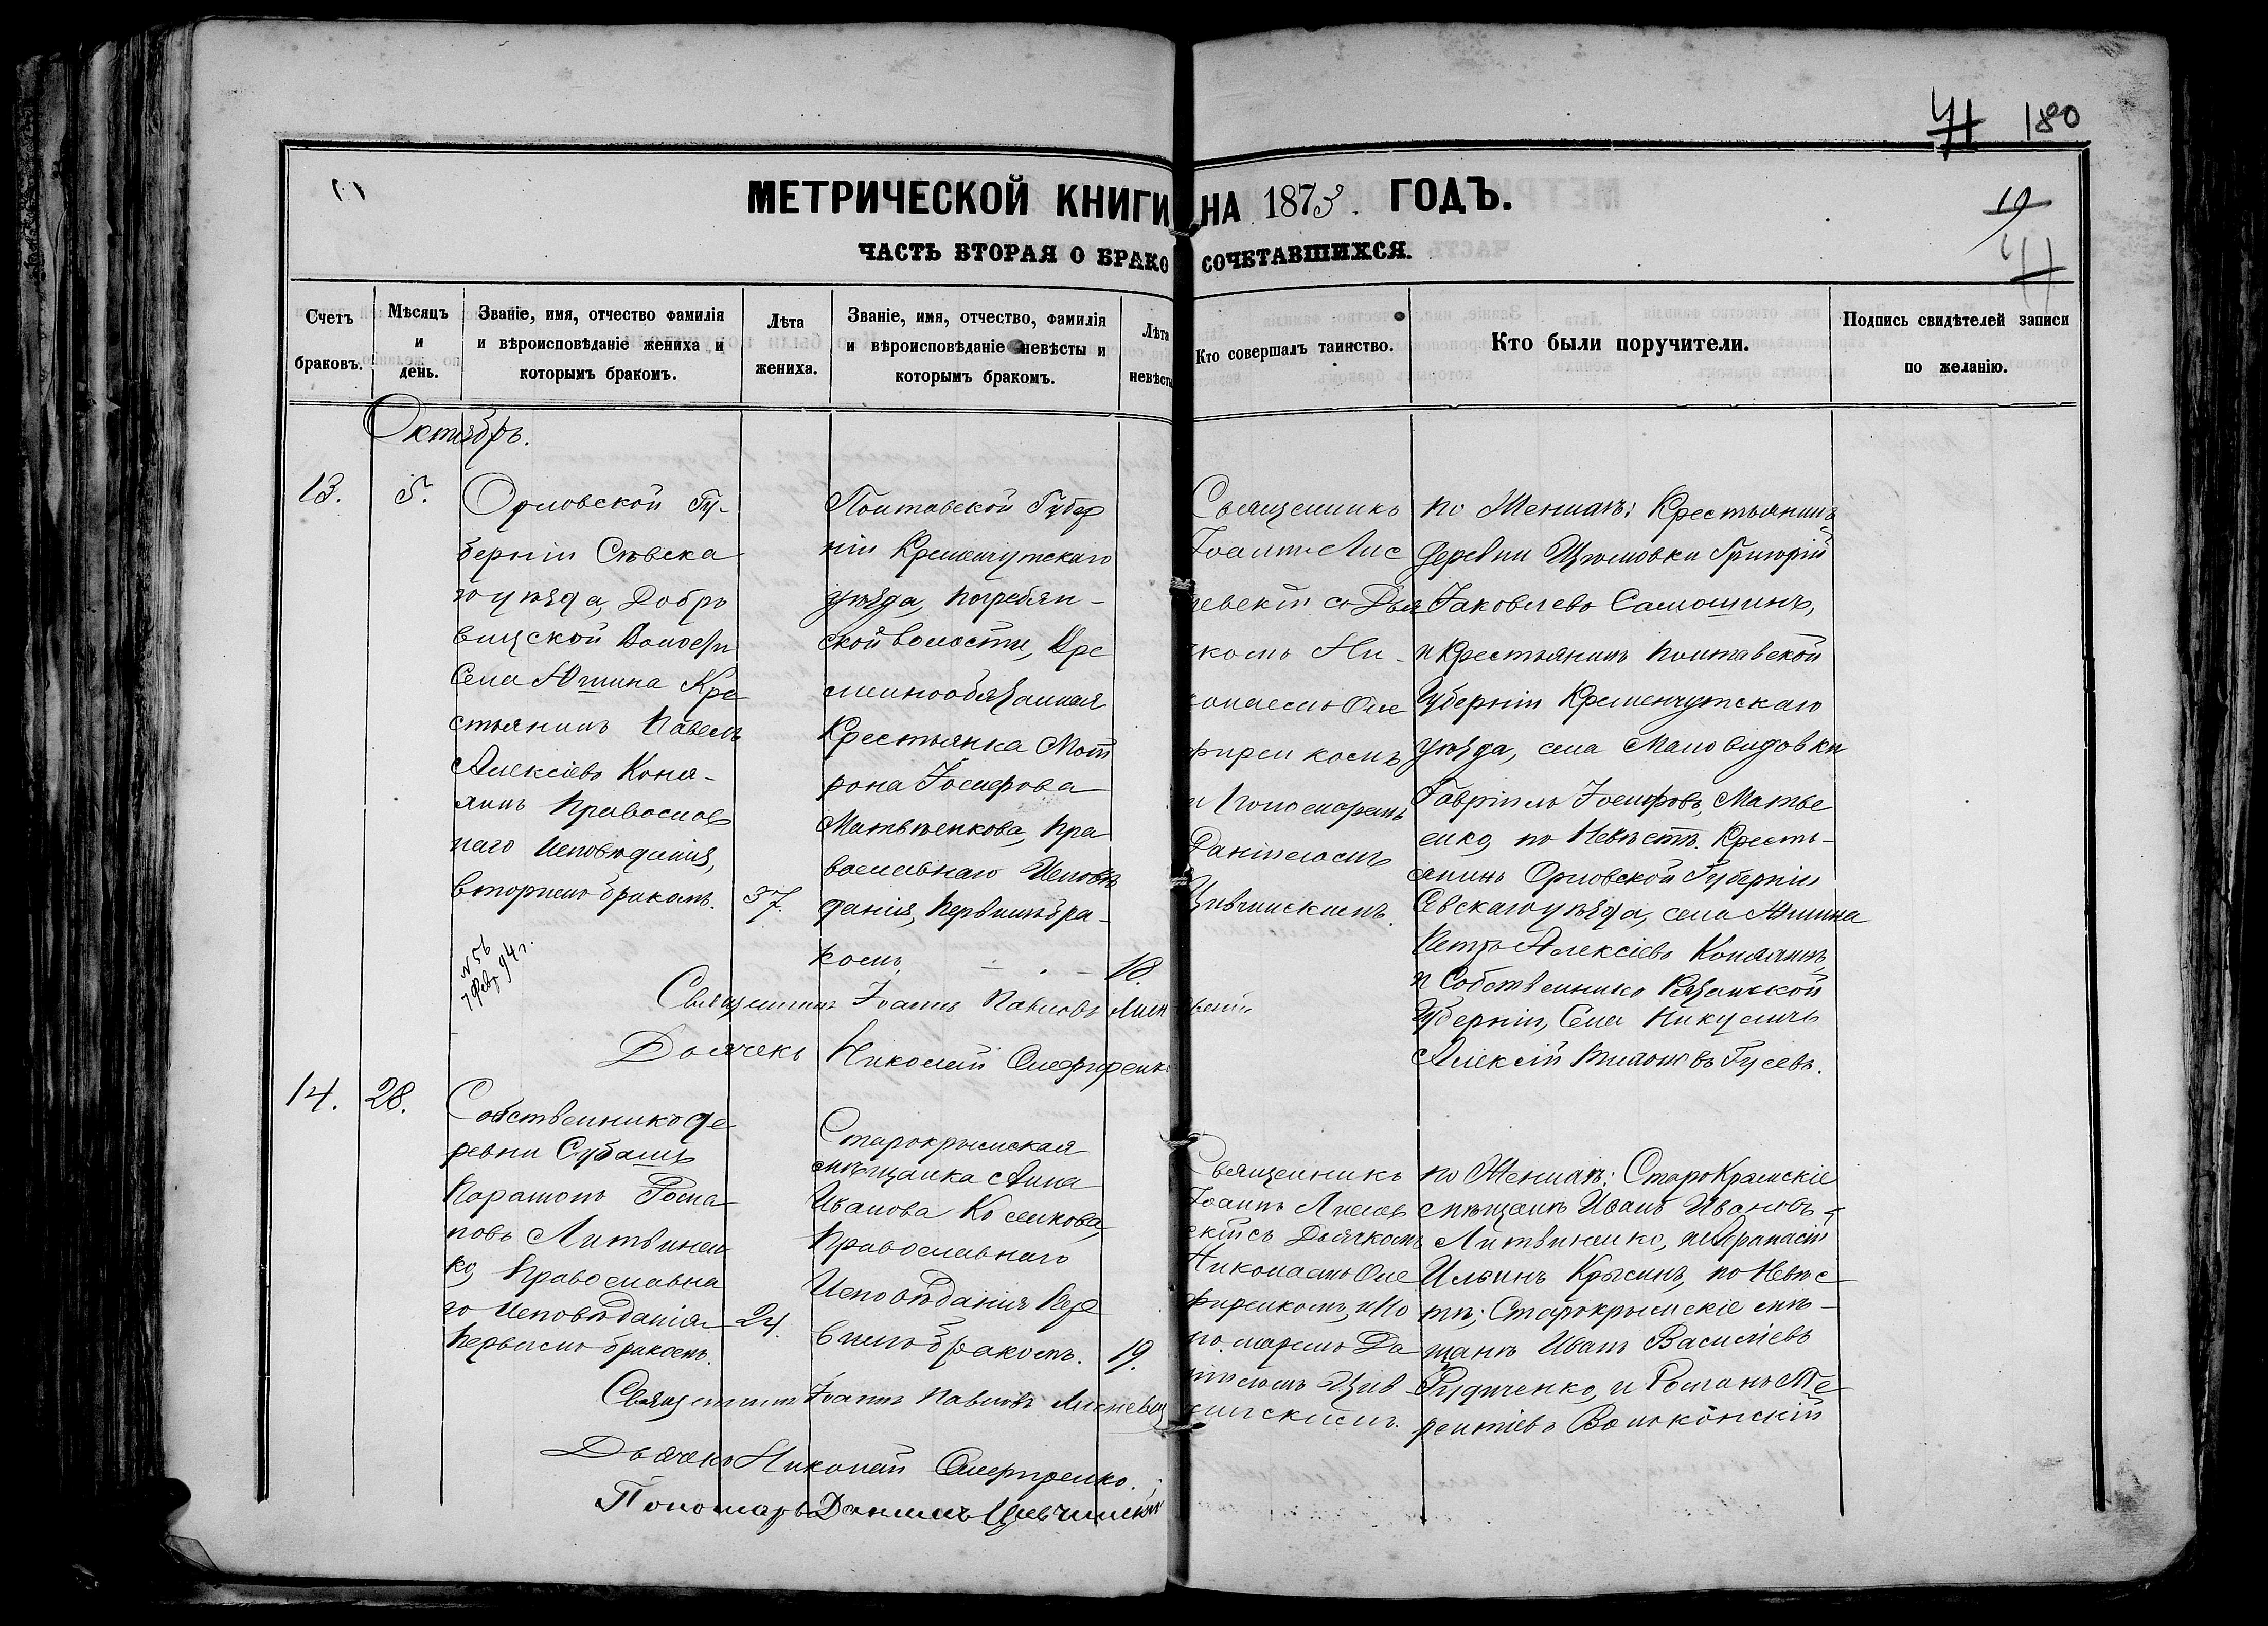 180
МЕТРИЧЕСКОЙ КНИГИ НА 1873. ГОДЪ.
19
ЧАСТЬ ВТОРАЯ О БРАКОСОЧЕТАВШИХСЯ.
Счетъ браковъ.
Мѣсяцъ и день.
Званіе, имя, отчество фамилія
и вѣроисповѣданіе жениха и
которымъ бракомъ.
Лѣта
жениха.
Званіе, имя, отчество, фамилія
и вѣроисповѣданіе невѣсты и
которымъ бракомъ.
Лѣта
невѣсты
Кто совершалъ таинство.
Кто были поручители.
Подпись свидѣтелей записи
по желанію.
Октябрь.
13.
5.
Орловской Гу-
берніи Сѣвска
го уѣзда, Добры
вицской Волости
Села Юшина Кре
стьянинъ Павелъ
Алексіевъ Коня-
хинъ Православ
наго Исповѣданія,
вторымъ бракомъ.
37.
Полтавской Губер
ніи Кременчугскаго
уѣзда, Погребян-
ской волости, Вре
меннообязанная
Крестьянка Мот
рона Іосифова
Матвѣенкова, Пра
вославнаго Исповѣ
данія, первымъ бра-
комъ.
18.
Священникъ
Іоаннъ Лис
невскій съ Дья
чкомъ Ни-
колаемъ Оле
фиренкомъ
и Пономаремъ
Даніиломъ
Цивчинскимъ.
по Женихѣ: Крестьянинъ
деревни Григорій
Іаковлевъ Самошинъ,
и Крестьянинъ Полтавской
Губерніи Кременчугскаго
уѣзда, села Мановидовки
Гавріилъ Іосифовъ Матве
енко, по Невѣстѣ. Кресть-
янинъ Орловской Губерніи
Севскаго уѣзда, села Юшина
Петръ Алексіевъ Коняхинъ,
и Собственникъ Рязанской
Губерніи, Села Никуличъ
Алексій Гусевъ.
№ 56
7 Февр 94 г.
Священникъ Іоаннъ Павловъ Лисневскій
Дьячекъ Николай Олефиренко
14.
28.
Собственникъ де
ревни Субашъ
Парамонъ Рома
новъ Литвинен
ко, Православна
го Исповѣданія
первымъ бракомъ.
24.
Старокрымская
мѣщанка Анна
Иванова
Православнаго
Исповѣданія Пер
вымъ бракомъ.
19.
Священникъ
Іоаннъ Лиснев
скій съ Дьячкомъ
Николаемъ Оле
фиренкомъ, и По
номаремъ Да
ніиломъ Цив
чинскимъ.
по Женихѣ: СтароКрымскіе
мѣщане Иванъ Ивановъ
Литвиненко, и Афанасій
Ильинъ Крысинъ, по Невѣс
тѣ: Старокрымскіе мѣ-
щане Иванъ Василіевъ
Рудиченко, и Романъ Те
рентіевъ Волконскій
Священникъ Іоаннъ Павловъ Лисневскій
Дьячекъ Николай Олефиренко.
Пономарь Даниилъ Цивчинскій